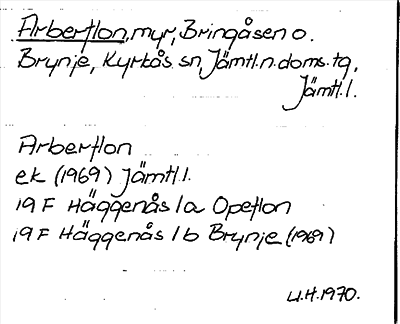 Arberflon, myr, Bringåsen o.
Brynje, Kyrkås sn, Jämtl.n.doms.tg,
Jämtl.l.
Arberflon
ek (1969) Jämtl.l.
19 F Häggenås / a Opeflon
19 F Häggenås / b Brynje (1969)
U.H. 1970.